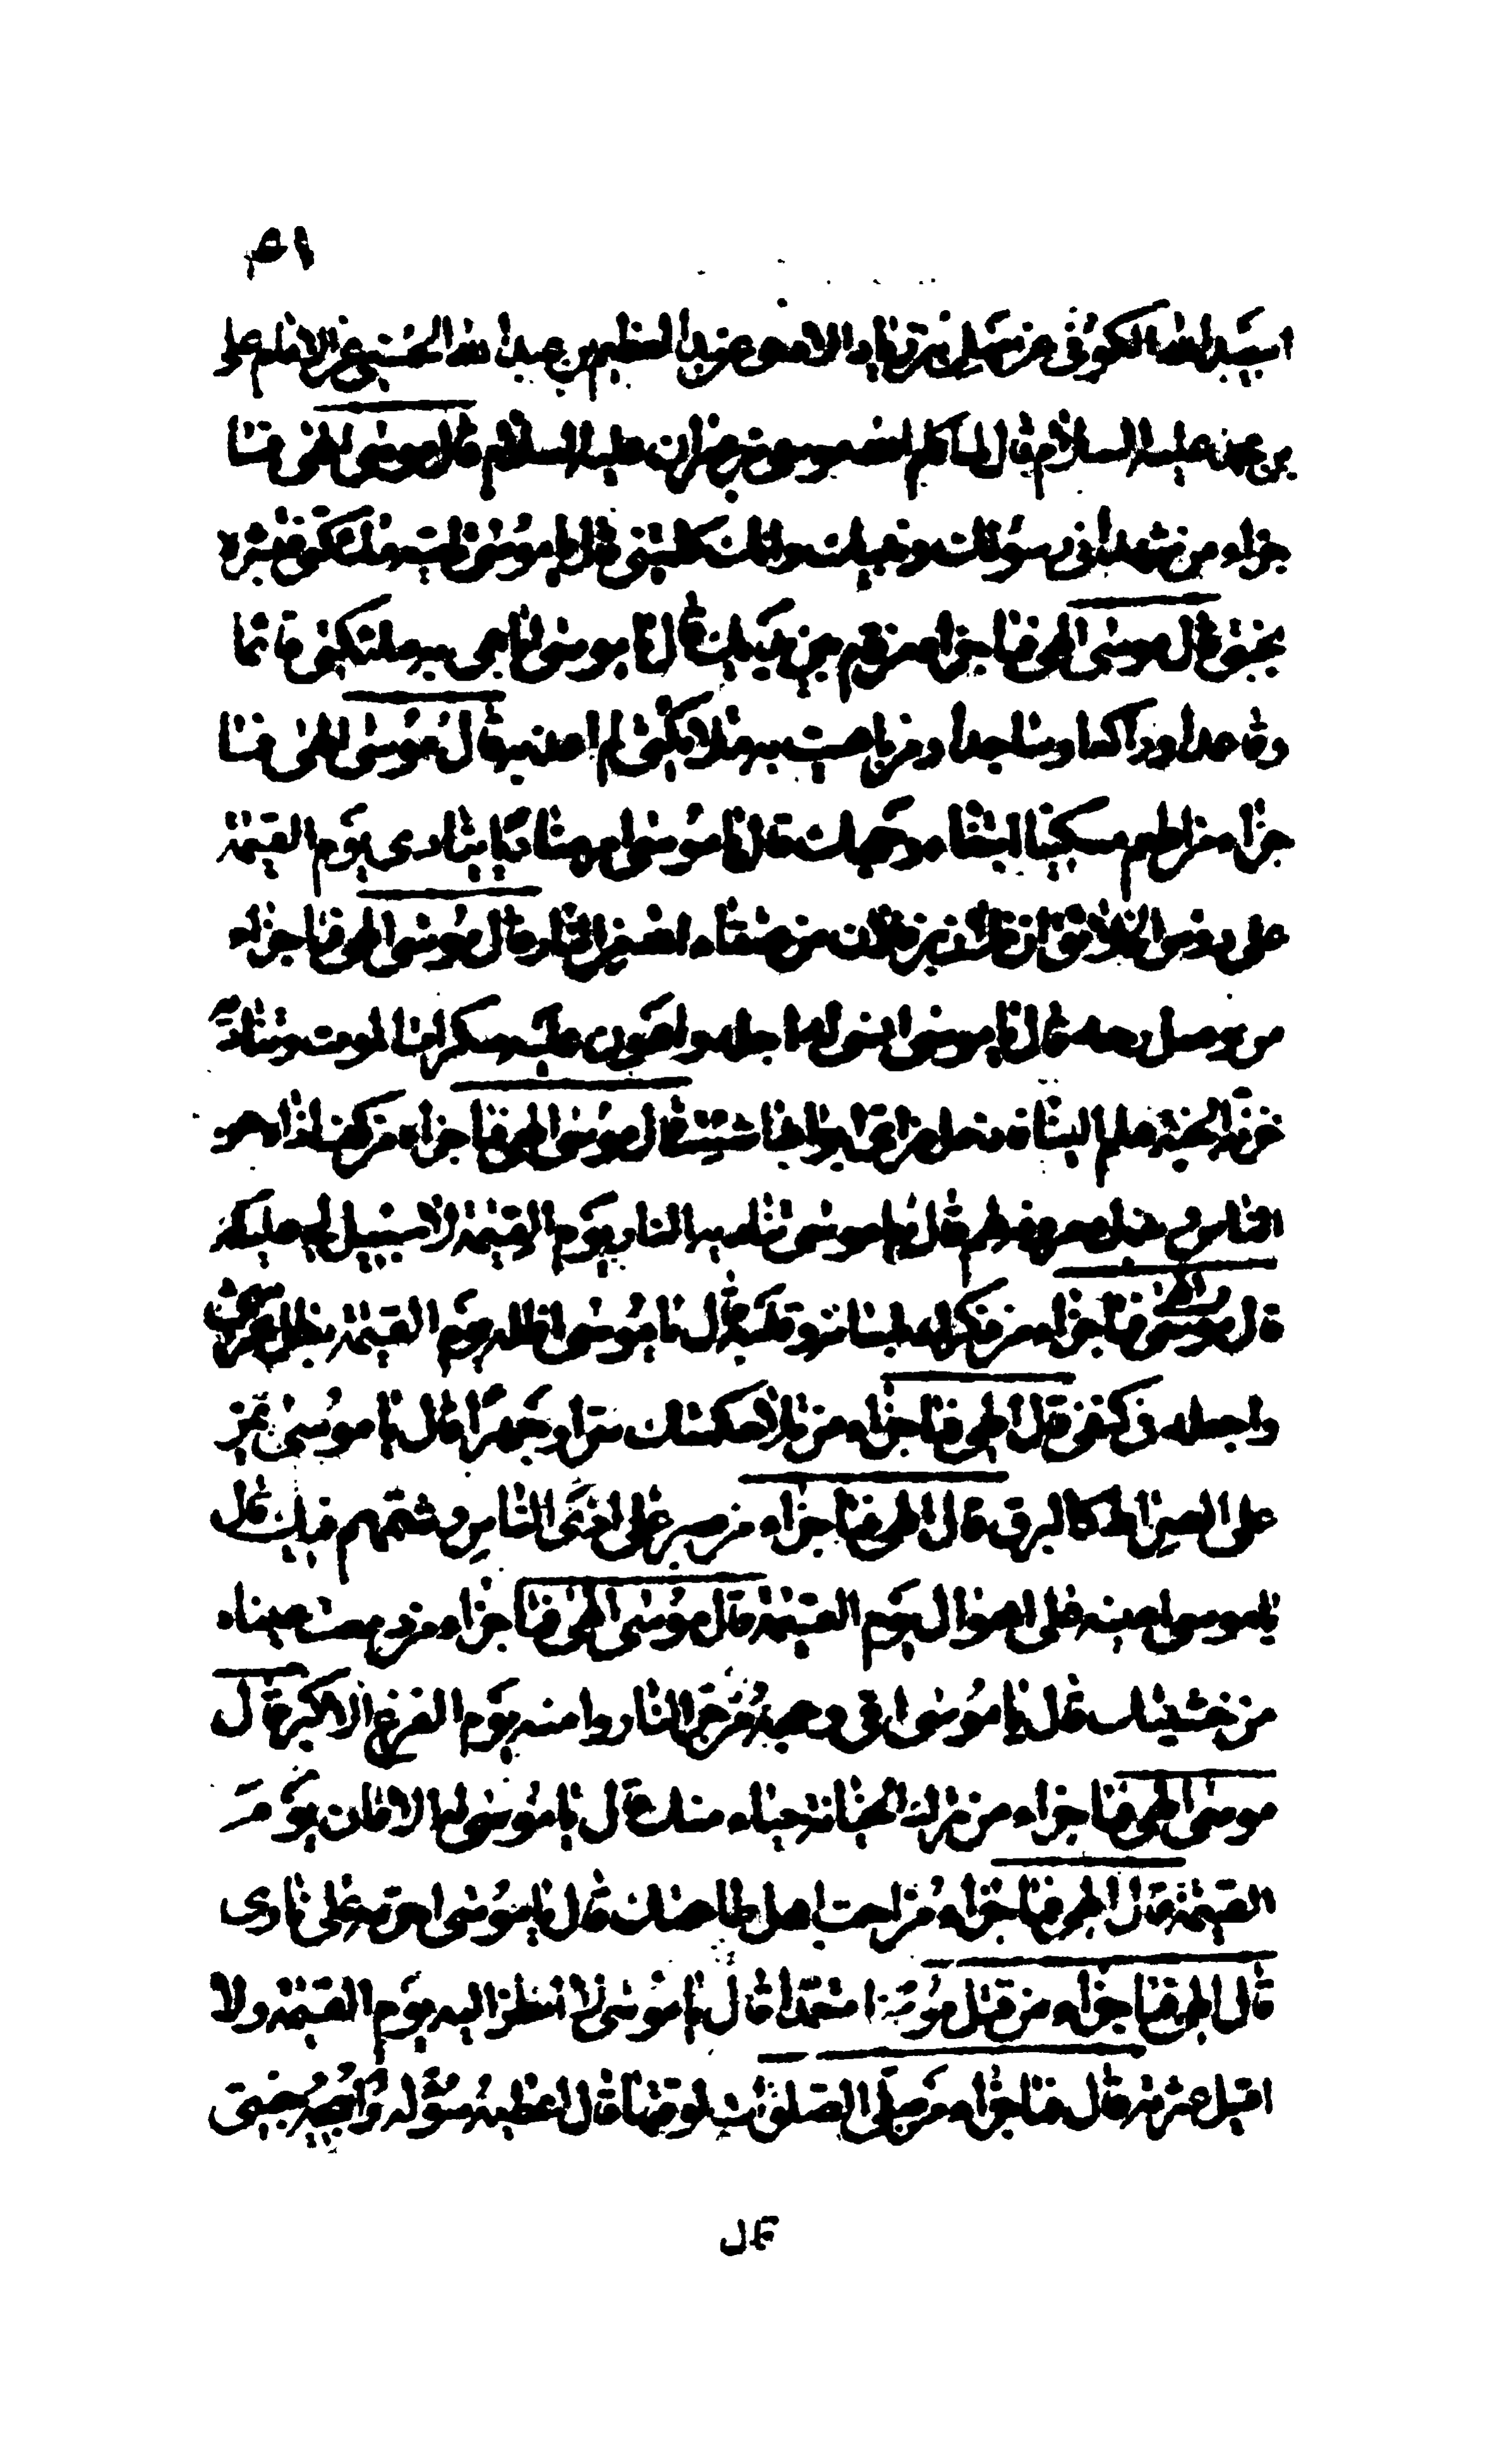 ٥١
اسد الله الكوفى عن محمد بن زياد الازدى عن عبد العظيم بن عبد الله الحسنى عن الامام على
بن محمد عليه السلام قال لما كلم الله موسى بن عمران عليه السلام قال موسى الهى فما
جزاء من شهد انى رسولك ونبيك وانك كلمتنى قال يا موسى تاتيه ملائكتى فتبشره
بجنتى قال موسى الهى فما جزاء من قام بين يديك قال يا موسى اباهى به ملائكتى قائما
وقاعدا وراكعا وساجدا ومن باهيت به ملائكتى لم اعذبه قال موسى الهى فما
جزاء من اطعم مسكينا ابتغاء وجهك قال يا موسى امر مناديا ينادى يوم القيمة
على رؤس الخلائق ان فلان بن فلان من عتقاء الله من النار قال موسى الهى فما جزاء
من وصل رحمه قال يا موسى انسى له اجله واهون عليه سكرات الموت وتناديه
خزنة الجنة هلم الينا فادخل من اى ابوابها شئت قال موسى الهى فما جزاء من كف اذاه عن
الناس وبذل معروفه لهم قال يا موسى تناديه النار يوم القيمة لا سبيل لى عليك
قال موسى الهى فما جزاء من ذكرك بلسانه وقلبه قال يا موسى اظله يوم القيمة بظل عرشى
واجعله فى كنفى قال الهى فما جزاء من تلا حكمتك سرا وجهرا قال يا موسى يمر
على الصراط كالبرق قال الهى فما جزاء من صبر على اذى الناس وشتمهم فيك قال
اعينه على اهوال يوم القيمة قال موسى الهى فما جزاء من دمعت عيناه
من خشيتك قال يا موسى اقى وجهه من حر النار وامنه يوم الفزع الاكبر قال
موسى الهى فما جزاء من ترك الخيانة حياء منك قال يا موسى له الامان يوم
القيمة قال الهى فما جزاء من احب اهل طاعتك قال يا موسى احرمه على نارى
قال الهى فما جزاء من قتل مؤمنا متعمدا قال يا موسى لا انظر اليه يوم القيمة ولا
اقيل عثرته قال فما جزاء من صلى الصلوات لوقتها قال اعطيه سؤله وابيحه جنتى
قال